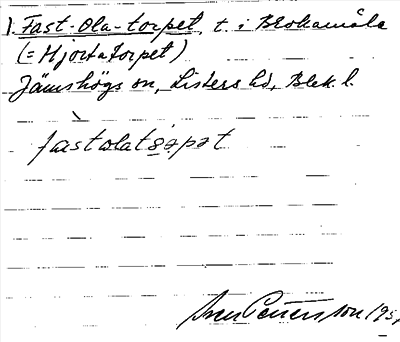 1. Fast-Ola-torpet, t. i Brokamåla
(= Hjortatorpet)
Jämshögs sn, Listers hd, Blek. l.
fàstolatɵ̣rpət
Sven Pettersson 195